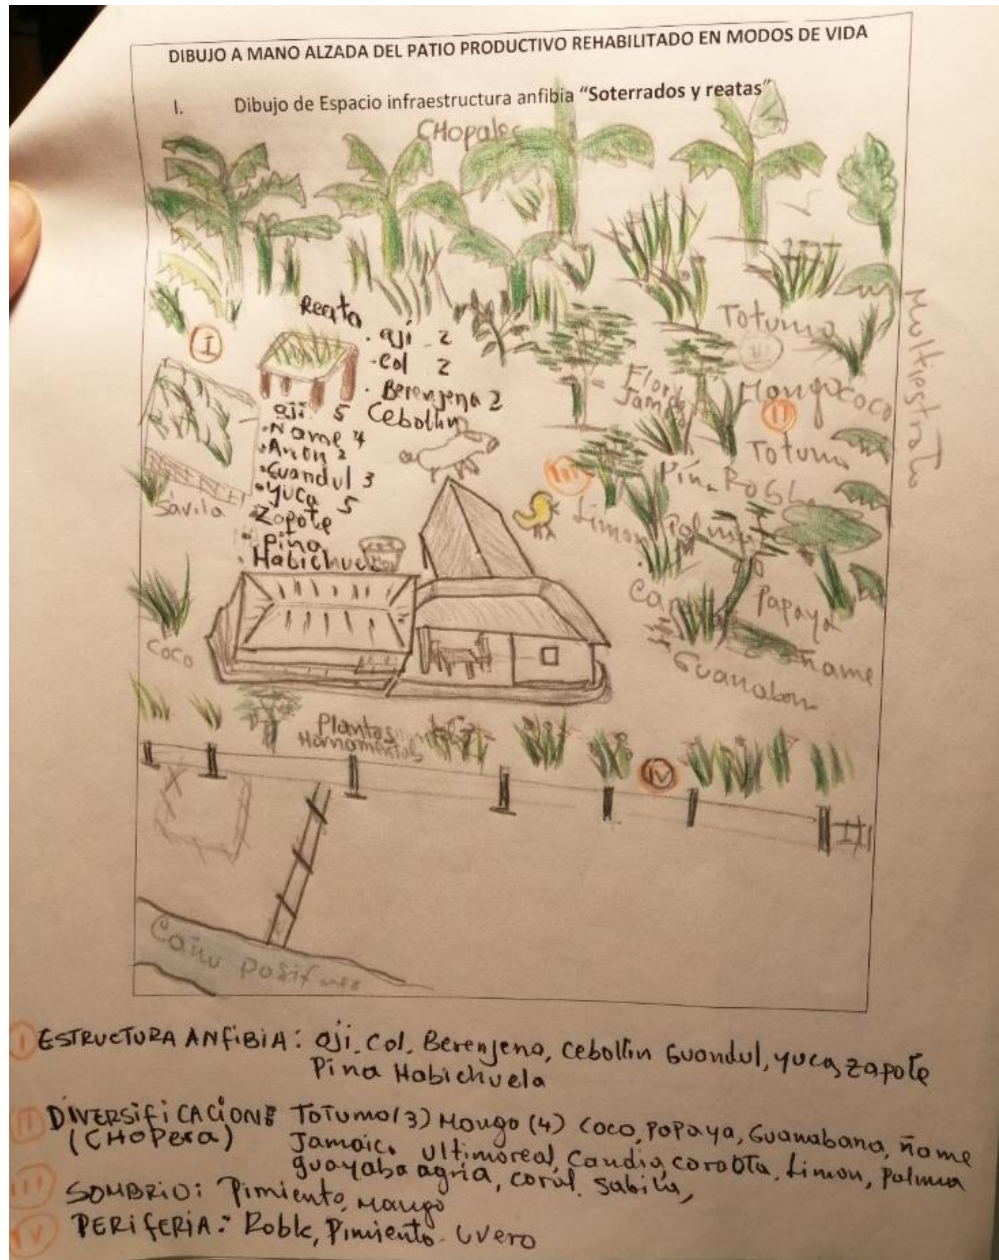 DIBUJO A MANO ALZADA DEL PATIO PRODUCTIVO REHABILITADO EN MODOS DE VIDA
I. Dibujo de Espacio infraestructura anfibia "Soterrados y reatas"
CHopales
Multiestrato
I
Reata
. aji 2
. col 2
. Berenjena 2
Cebollin
aji 5
. Ñame 4
. Anon 2
. Guandul 3
. Yuca 5
. Zapote
. Piña
. Habichuela
Sávila
Coco
Totumo
III
Mango
Coco
II
Totumo
Piña
Roble
III
Limon
Palma
Papaya
ñame
Guanaban
Plantas
Hornamentales
IV
Caño
I ESTRUCTURA ANFiBiA: aji. Col, Berenjena, cebollin Guandul, yuca, zapote
Pina Habichuela
II DiVERSiFiCACiON: ToTumo(3) Mango (4) coco, papaya, Guanabana, ñame
(CHOPera) Jamaica ultimoreal, Candia, corozta, Limon, palma
guayaba agria, coral, sabila,
III SOMBRiO: Pimiento, Mango
IV PERiFERiA: Roble, Pimiento. Uvero